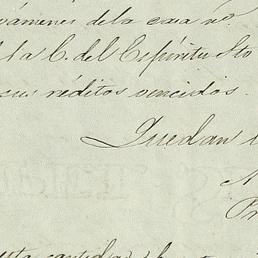 vámenes dela casa nº.
la C. del Espíritu Sto
sus réditos vencidos.
Quedan
esta cantidad